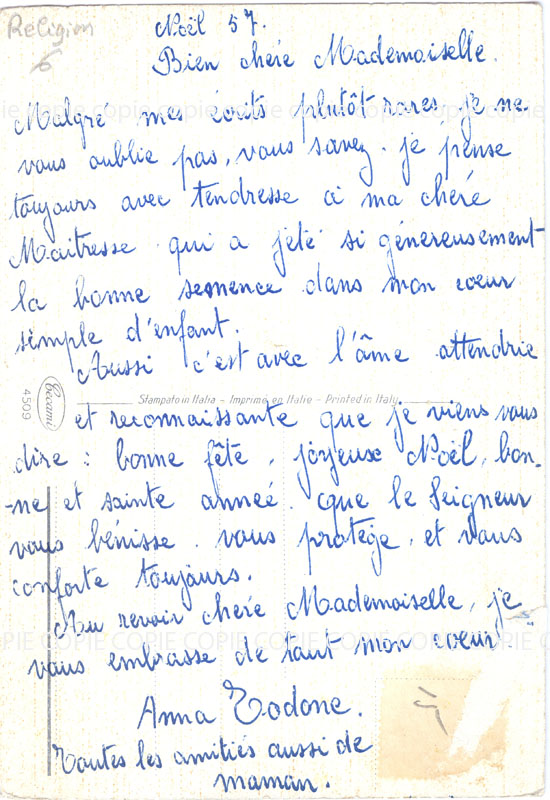 Religion
6
Noël 57.
Bien chère Mademoiselle.
Malgré mes écrits plutôt rares, je ne
vous oublie pas, vous savez. je pense
toujours avec tendresse à ma chère
Maitresse qui a jeté si généreusement
la bonne semence dans mon coeur
simple d'enfant.
Aussi c'est avec l'âme attendrie
Cecami
4509
Stampato in Italia - Imprimé en Italie - Printed in Italy
et reconnaissante que je viens vous
dire : bonne fête, joyeuse Noël, bon-
-ne et sainte année. que le Seigneur
vous bénisse. vous protège. et vous
conforte toujours.
Au revoir chère Mademoiselle, je
vous embrasse de tout mon coeur.
COPIE COPIE COPIE COPIE COPIE COPIE
Anna Todone.
Toutes les amitiés aussi de
maman.